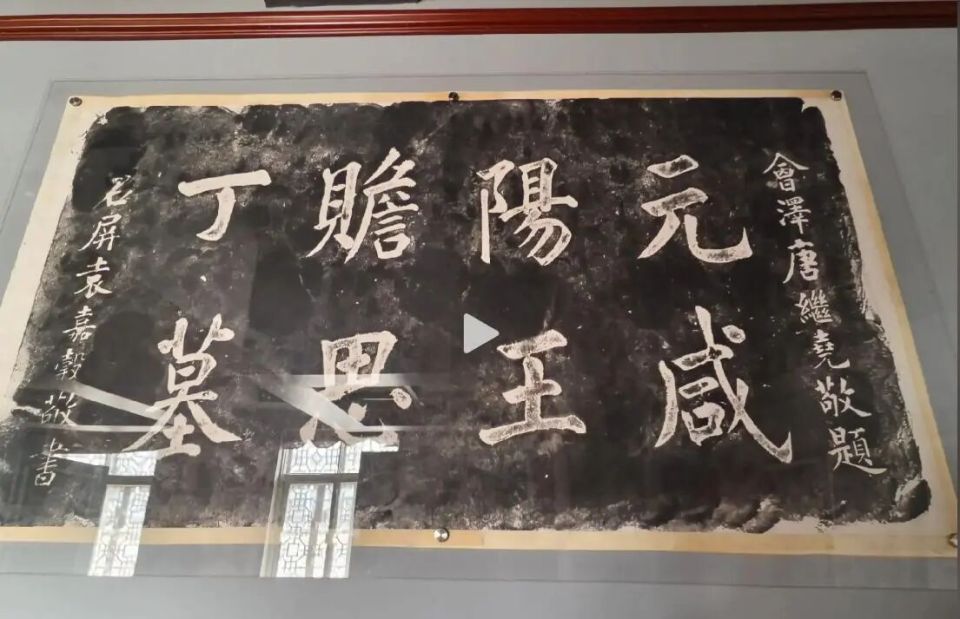 會澤唐繼堯敬題
元咸
陽王
贍思
丁墓
石屏袁嘉穀敬書